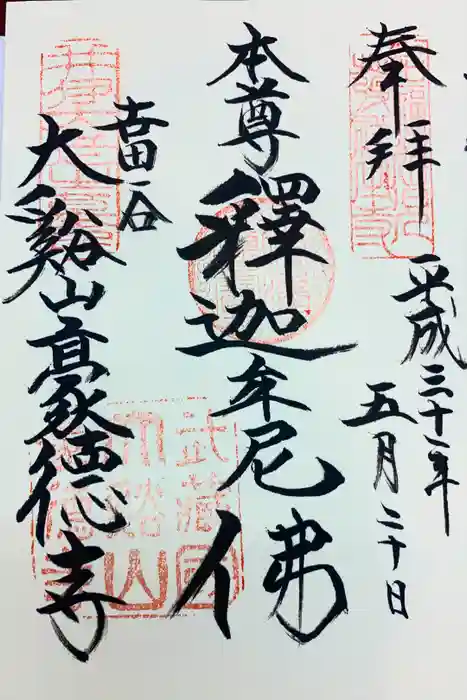 奉拝
平成三十年
五月二十日
本尊
釋迦牟尼佛
世田谷
大谿山豪德寺
武蔵国
大谿山